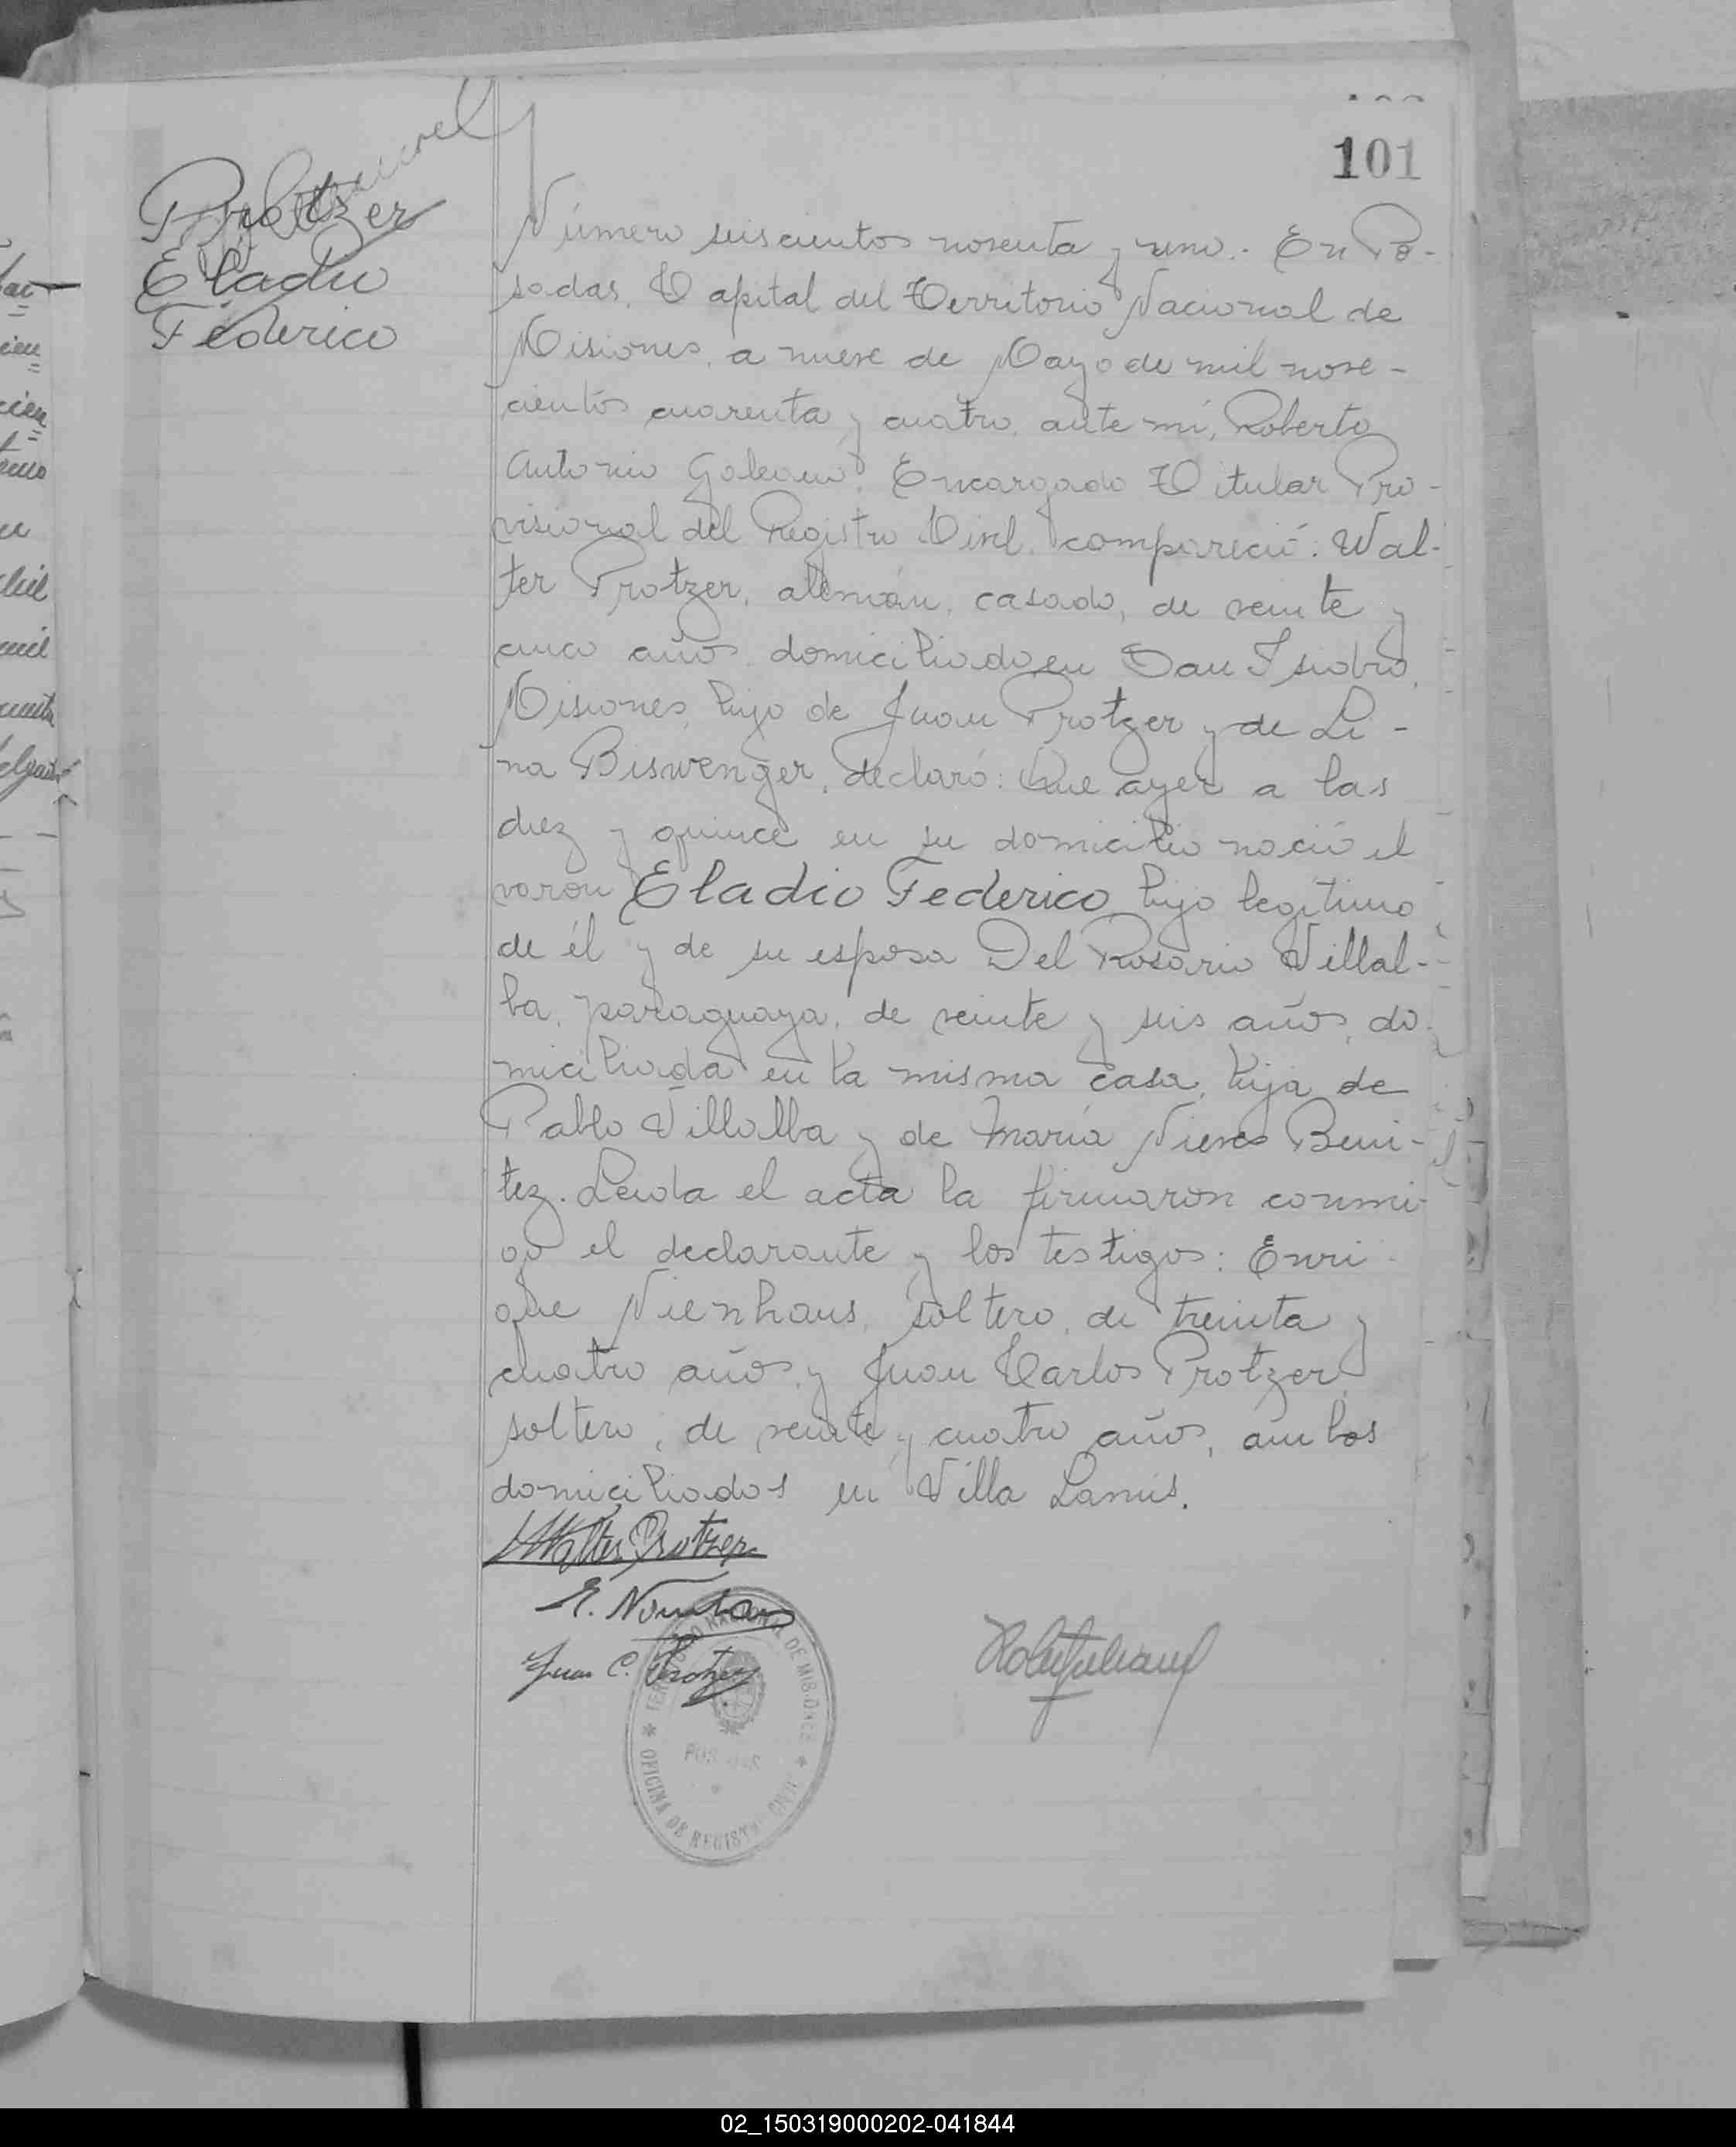 101
Protzer
Eladio
Federico
Número seiscientos noventa y uno.- En Po-
sadas, Capital del Territorio Nacional de
Misiones, a nueve de Mayo de mil nove-
cientos cuarenta y cuatro, ante mí, Roberto
Antonio Galeano, Encargado Titular Pro-
visional del Registro Civil, compareció: Wal-
ter Protzer, alemán, casado, de veinte y
cinco años, domiciliado en San Isidro,
Misiones, hijo de Juan Protzer y de Li-
na Biswenger, declaró: Que ayer a las
diez y quince en su domicilio nació el
varon Eladio Federico, hijo legítimo
de él y de su esposa Del Rosario Villal-
ba, paraguaya, de veinte y seis años, do
miciliada en la misma casa, hija de
Pablo Villalba y de María Nieves Beni-
tez. Leida el acta la firmaron conmi-
go el declarante y los testigos: Enri-
que Nienhaus, soltero, de treinta y
cuatro años, y Juan Carlos Protzer,
soltero, de veinte y cuatro años, ambos
domiciliados en Villa Lanús.
Walter Protzer
E. Nienhaus
Juan C. Protzer
TERRITORIO NACIONAL DE MISIONES
POSADAS
OFICINA DE REGISTRO CIVIL
02_150319000202-041844